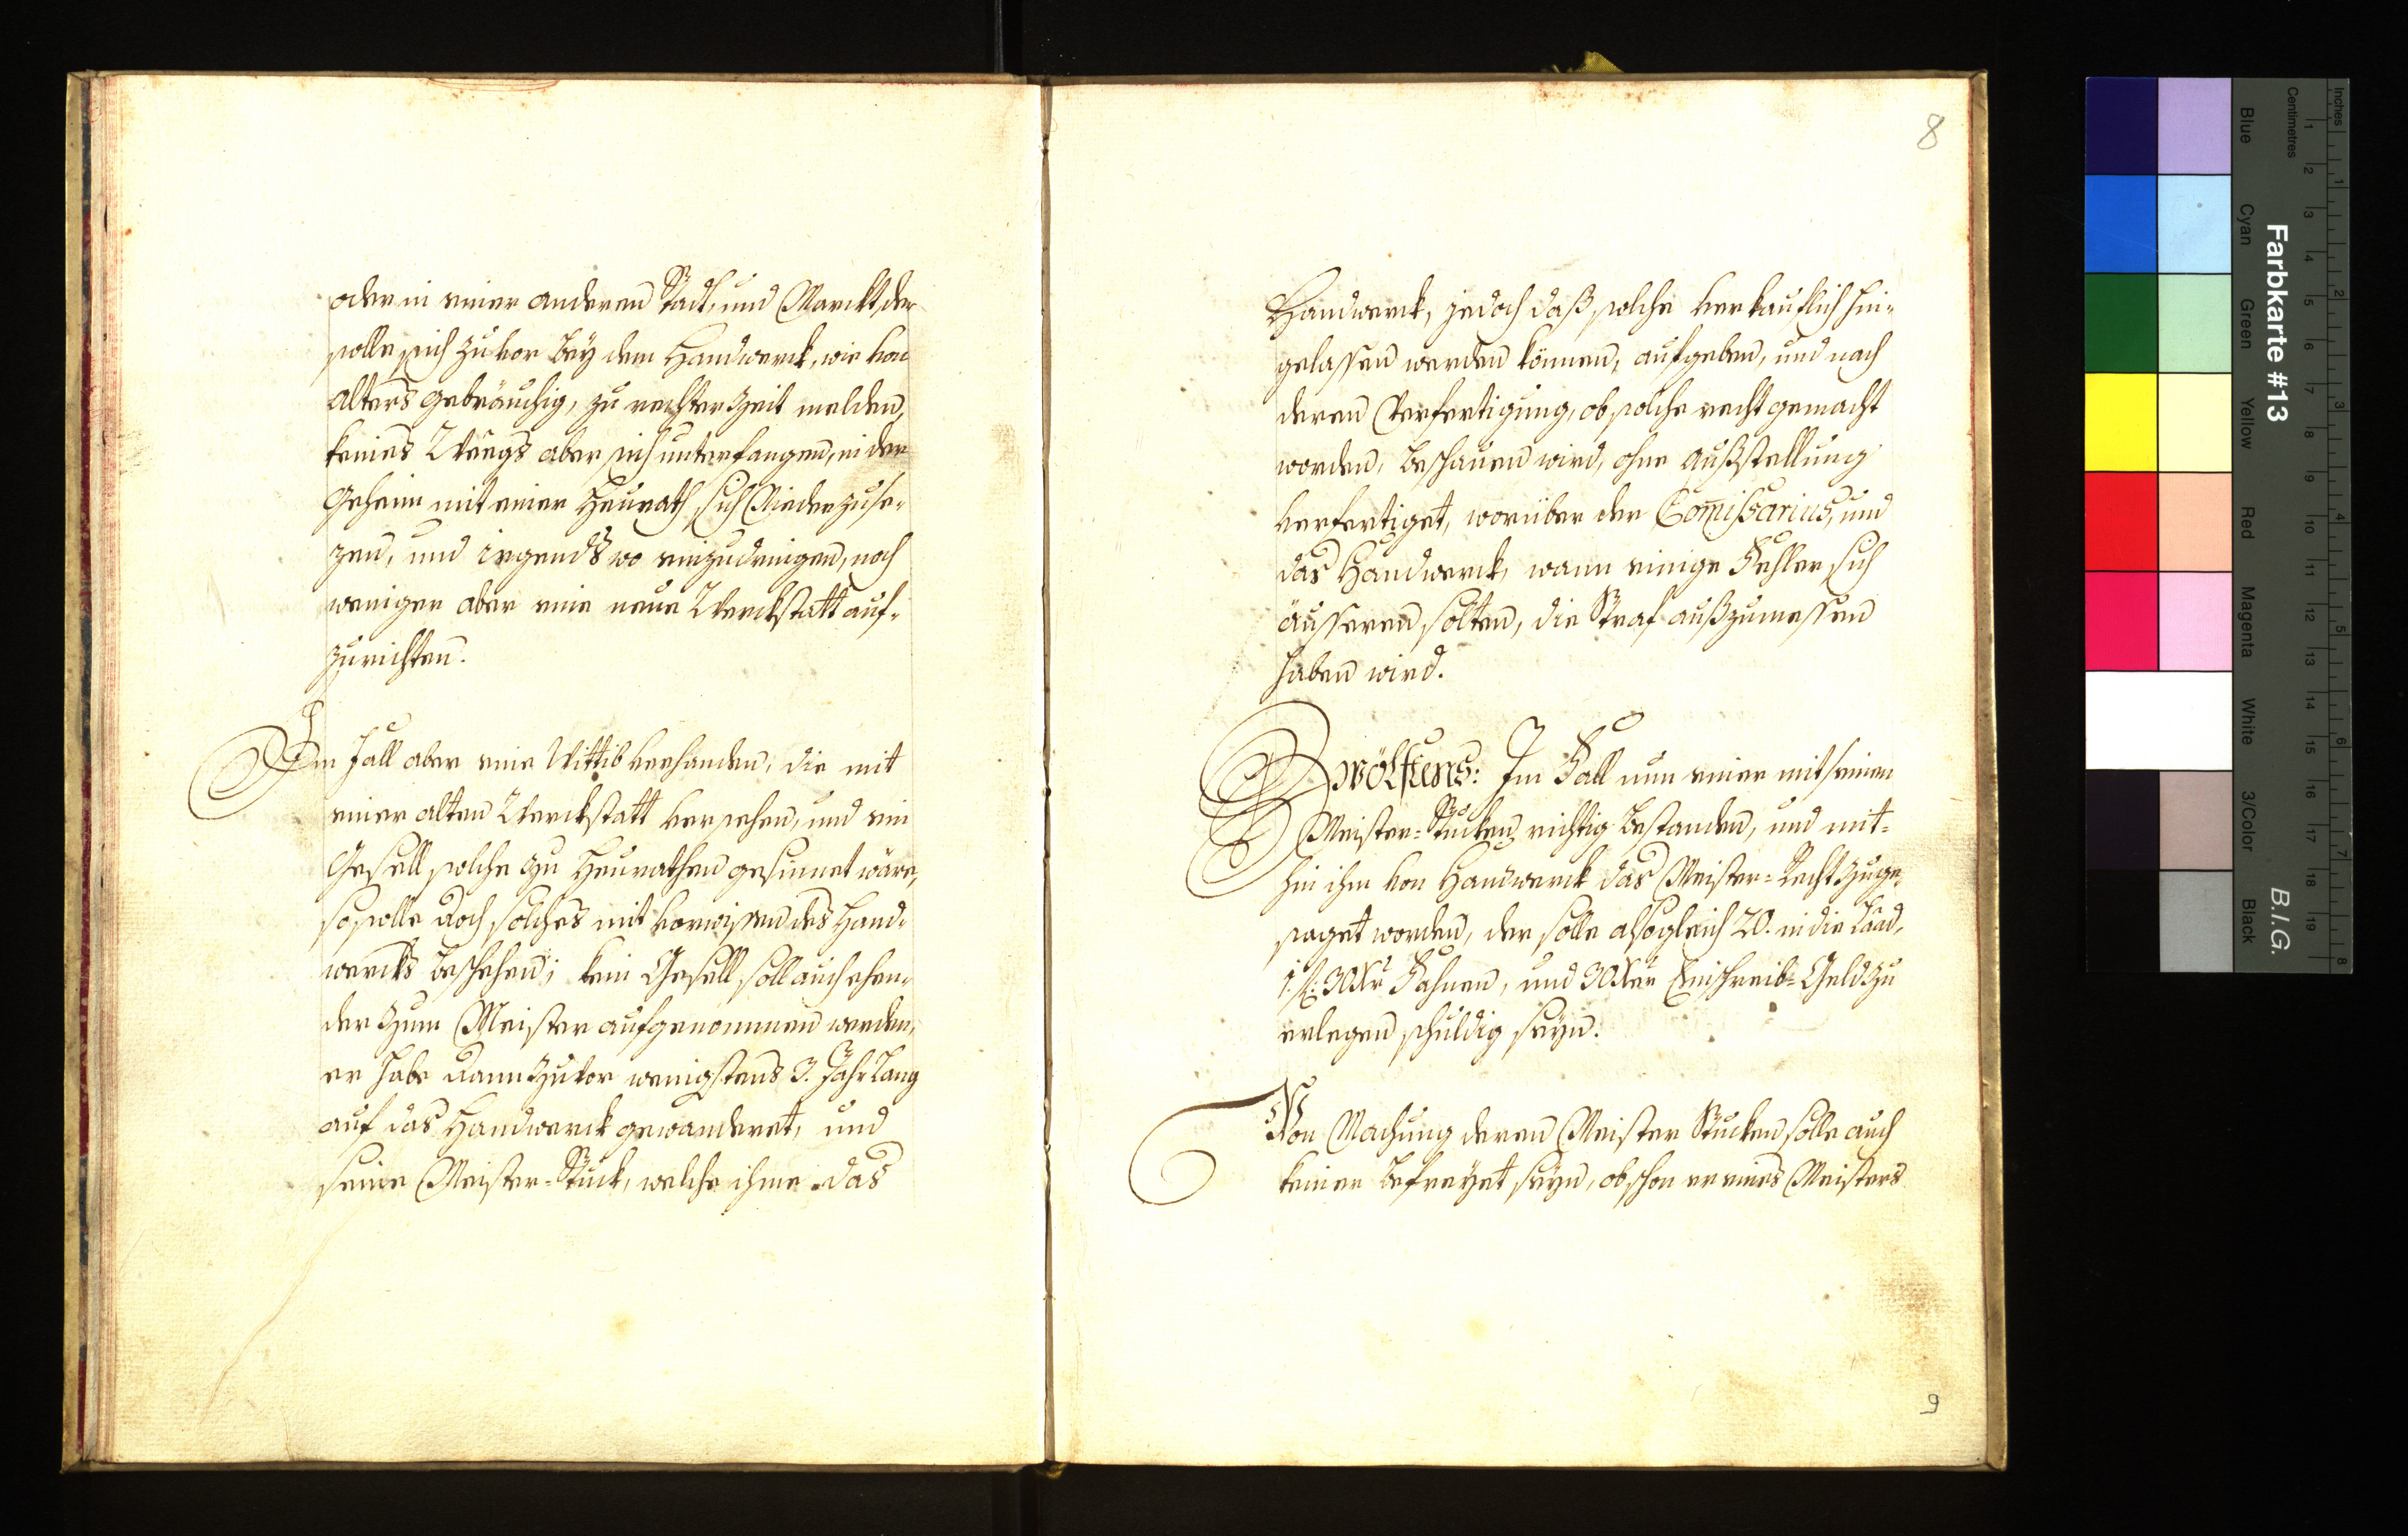 oder in einer anderen Stadt, und Marckt, der
solle sich zuvor bey dem Handwerck, wie von
alters gebräuchig, zu rechter Zeit melden,
keines Weegs aber sich unterfangen, in der
Geheim mit einer Heurath sich Niederzuse-
zen, und irgends wo einzudringen, noch
weniger aber eine neue Werckstatt auf-
zurichten.
Im fall aber eine Wittib verhanden, die mit
einer alten Werckstatt versehen, und ein
Gesell solche zu Heurathen gesinnet wäre,
so solle doch solches mit vorwissen des Hand-
wercks beschehen; kein Gesell soll auch ehen-
der zum Meister aufgenommen werden,
er habe dann zuvor wenigstens 3. Jahr lang
auf das Handwerck gewanderet, und
seine Meister-Stuck, welche ihme das
8
Handwerck, jedoch daß solche verkauflich hin-
gelassen werden können, aufgeben, und nach
deren Verfertigung, ob solche recht gemacht
worden, beschauen wird, ohne außstellung
verfertiget, worüber der Comissarius, und
das Handwerck, wann einige Fehler sich
äusseren solten, die Straf außzumessen
haben wird.
Zwölftens: Im Fall nun einer mit seinen
Meister=Stucken richtig bestanden, und mit=
hin ihm von Handwerck das Meister=Recht zuge-
saget worden, der solle alsogleich 20. in die Laad,
1. fl: 30 Xr Fahnen, und 30 Xer Einschreib=Geld zu
erlegen schuldig seyn.
Von Machung deren Meister Stucken solle auch
keiner befreyet seyn, obschon er eines Meisters
9
Farbkarte #13
B.I.G.
Inches
Centimetres
1 2 3 4 5 6 7 8
1 2 3 4 5 6 7 8 9 10 11 12 13 14 15 16 17 18 19
Blue
Cyan
Green
Yellow
Red
Magenta
White
3/Color
Black